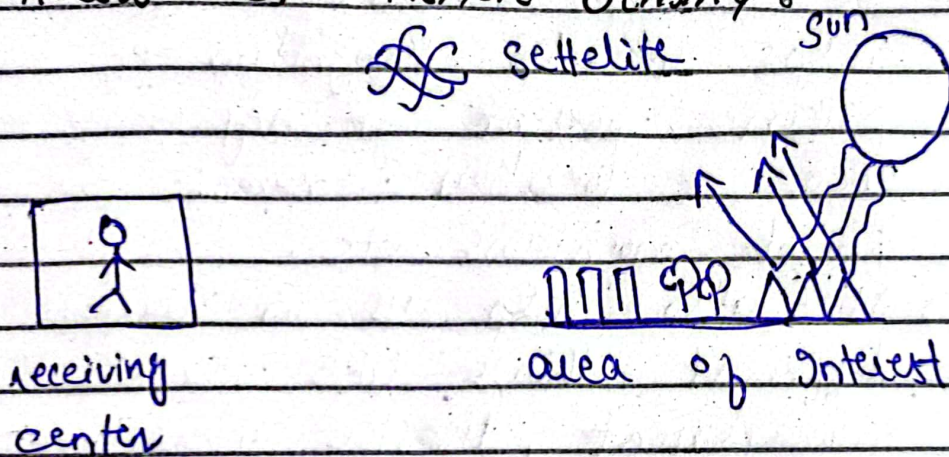 Sun
settelite
receiving
center
area of Interest